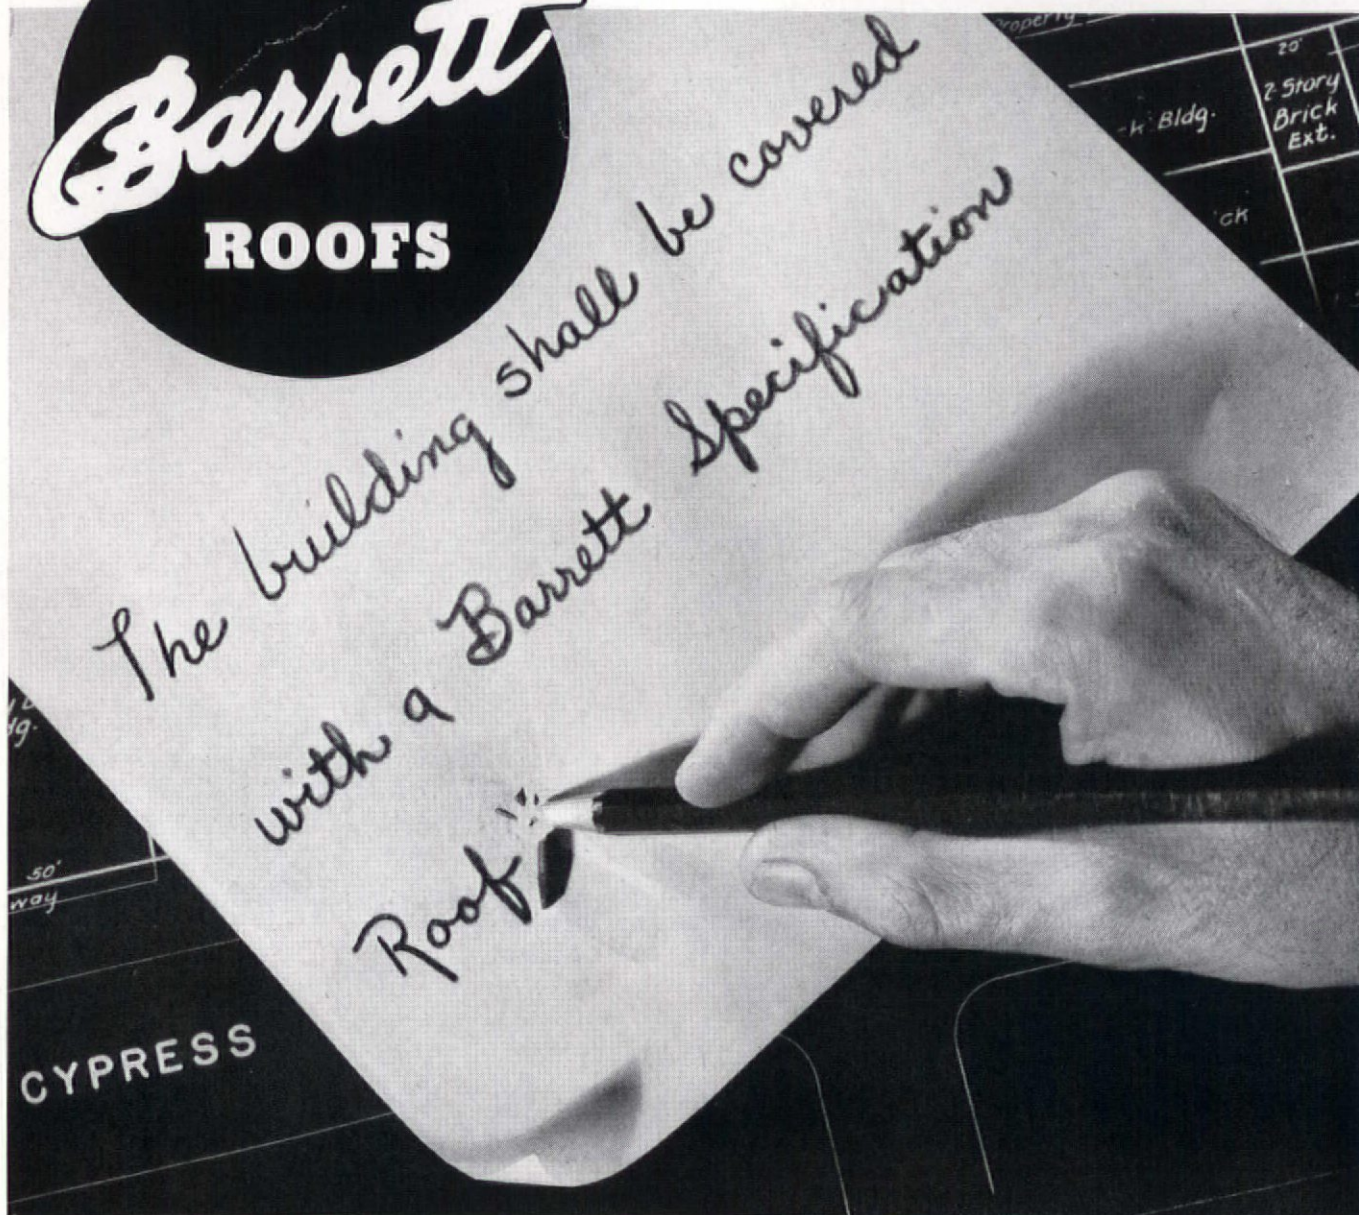 Barrett
ROOFS
The building shall be covered
with a Barrett Specification
Roof
Property
20'
2 Story
Brick
Ext.
Bldg.
50'
way
CYPRESS